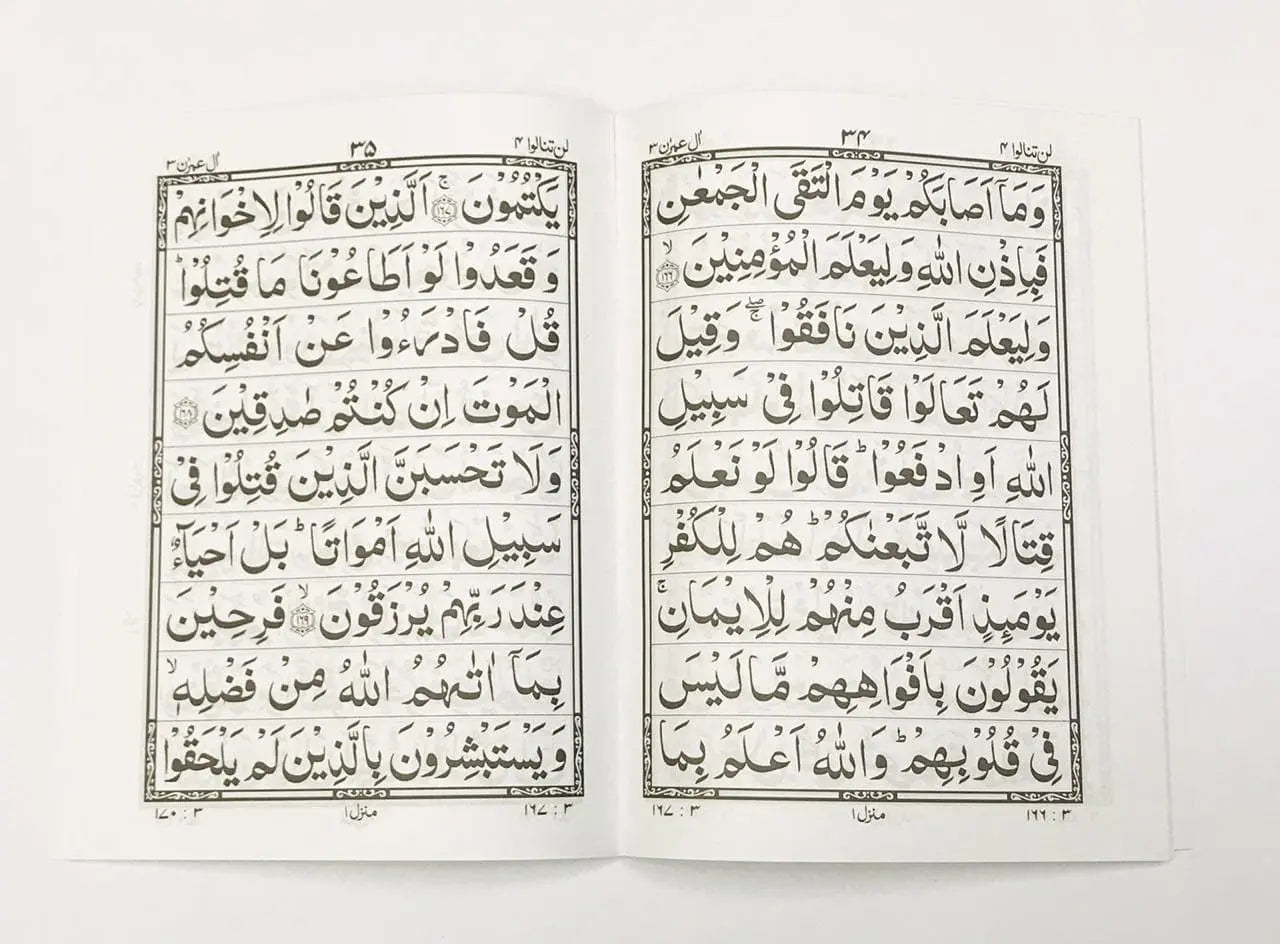 لن تنالوا ۴ ۳۴ اٰل عمرٰن ۳
وَمَاۤ اَصَابَكُمْ یَوْمَ الْتَقَی الْجَمْعٰنِ
فَبِاِذْنِ اللّٰهِ وَلِیَعْلَمَ الْمُؤْمِنِیْنَ ۙ‏﴿۱۶۶﴾
وَلِیَعْلَمَ الَّذِیْنَ نَافَقُوْا ۖۚ وَقِیْلَ
لَهُمْ تَعَالَوْا قَاتِلُوْا فِیْ سَبِیْلِ
اللّٰهِ اَوِ ادْفَعُوْا ؕ قَالُوْا لَوْ نَعْلَمُ
قِتَالًا لَّا تَّبَعْنٰكُمْ ؕ هُمْ لِلْكُفْرِ
یَوْمَىِٕذٍ اَقْرَبُ مِنْهُمْ لِلْاِیْمَانِ ۚ
یَقُوْلُوْنَ بِاَفْوَاهِهِمْ مَّا لَیْسَ
فِیْ قُلُوْبِهِمْ ؕ وَاللّٰهُ اَعْلَمُ بِمَا
۳ : ۱۶۶ منزل ۱ ۳ : ۱۶۷
لن تنالوا ۴ ۳۵ اٰل عمرٰن ۳
یَكْتُمُوْنَ ۚ‏﴿۱۶۷﴾ اَلَّذِیْنَ قَالُوْا لِاِخْوَانِهِمْ
وَقَعَدُوْا لَوْ اَطَاعُوْنَا مَا قُتِلُوْا ؕ
قُلْ فَادْرَءُوْا عَنْ اَنْفُسِكُمُ
الْمَوْتَ اِنْ كُنْتُمْ صٰدِقِیْنَ ﴿۱۶۸﴾
وَلَا تَحْسَبَنَّ الَّذِیْنَ قُتِلُوْا فِیْ
سَبِیْلِ اللّٰهِ اَمْوَاتًا ؕ بَلْ اَحْیَآءٌ
عِنْدَ رَبِّهِمْ یُرْزَقُوْنَ ۙ‏﴿۱۶۹﴾ فَرِحِیْنَ
بِمَاۤ اٰتٰىهُمُ اللّٰهُ مِنْ فَضْلِهٖ ۙ
وَیَسْتَبْشِرُوْنَ بِالَّذِیْنَ لَمْ یَلْحَقُوْا
۳ : ۱۶۷ منزل ۱ ۳ : ۱۷۰